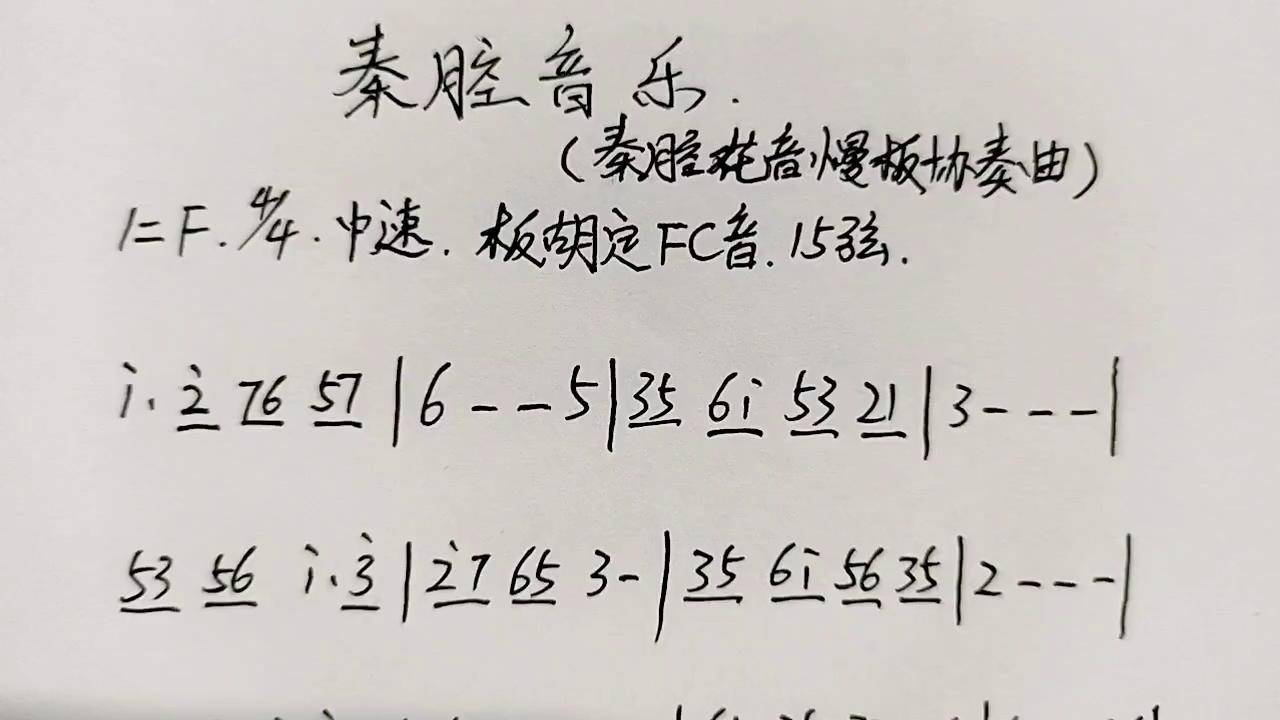 秦腔音乐.
(秦腔花音慢板协奏曲)
1=F. 4/4. 中速. 板胡定FC音. 15弦.
i. 2̇ 76 57 | 6 - - 5 | 35 6i 53 21 | 3 - - - |
53 56 i. 3̇ | 2̇7 65 3 - | 35 6i 56 35 | 2 - - - |